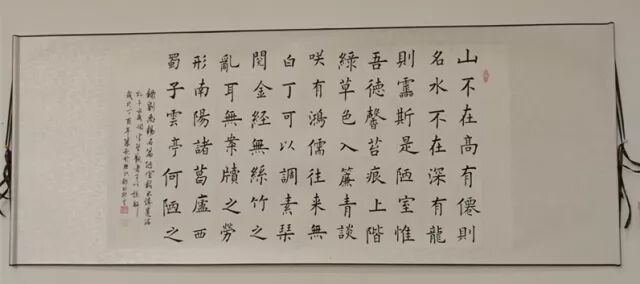 山不在高有僊則
名水不在深有龍
則靈斯是陋室惟
吾德馨苔痕上階
綠草色入簾青談
咲有鴻儒往来無
白丁可以調素琴
閱金經無絲竹之
亂耳無案牘之勞
形南陽諸葛廬西
蜀子雲亭何陋之
劉禹錫名篇